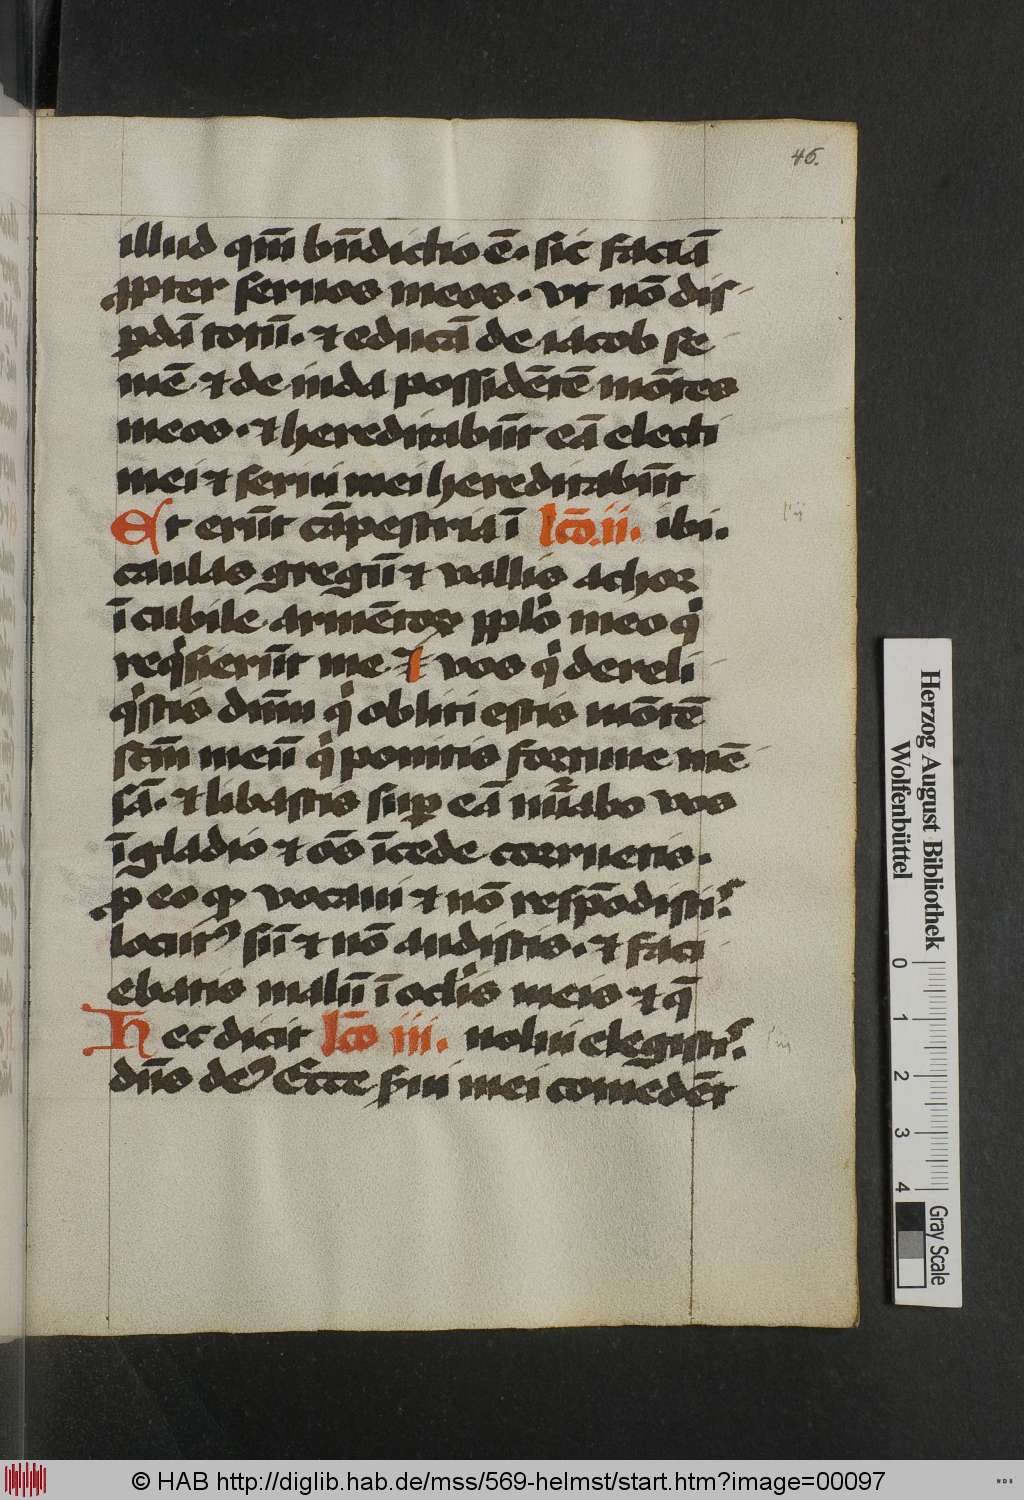 46.
illud qm̄ bn̄dictio ē. sic faciā
ꝓpter seruos meos. vt nō dis
ꝑdā totū. et educā de iacob se
mē et de iuda possidētē mōtes
meos. et hereditabūt eā electi
mei et serui mei hereditabūt
Et erūt cāpestria ī lc̄o. ii. ibi.
caulas gregū et vallis achor
ī cubile armētoꝝ pplo meo qi
reqisierūt me et vos qi dereli
qistis dn̄m qi obliti estis mōtē
sc̄m meū qi ponitis fortune mē
sā. et libastis suꝑ eā nūabo vos
ī gladio et oēs ī cede corruetis.
ꝓ eo ꝙ vocaui et nō respōdistis.
locutꝰ sū et nō audistis. et faci
ebatis malū ī oclis meis et q̄
Hec dicit lc̄o iii. nolui elegistis.
dn̄s deꝰ Ecce sui mei comedēt
Herzog August Bibliothek
Wolfenbüttel
0 1 2 3 4
Gray Scale
© HAB http://diglib.hab.de/mss/569-helmst/start.htm?image=00097